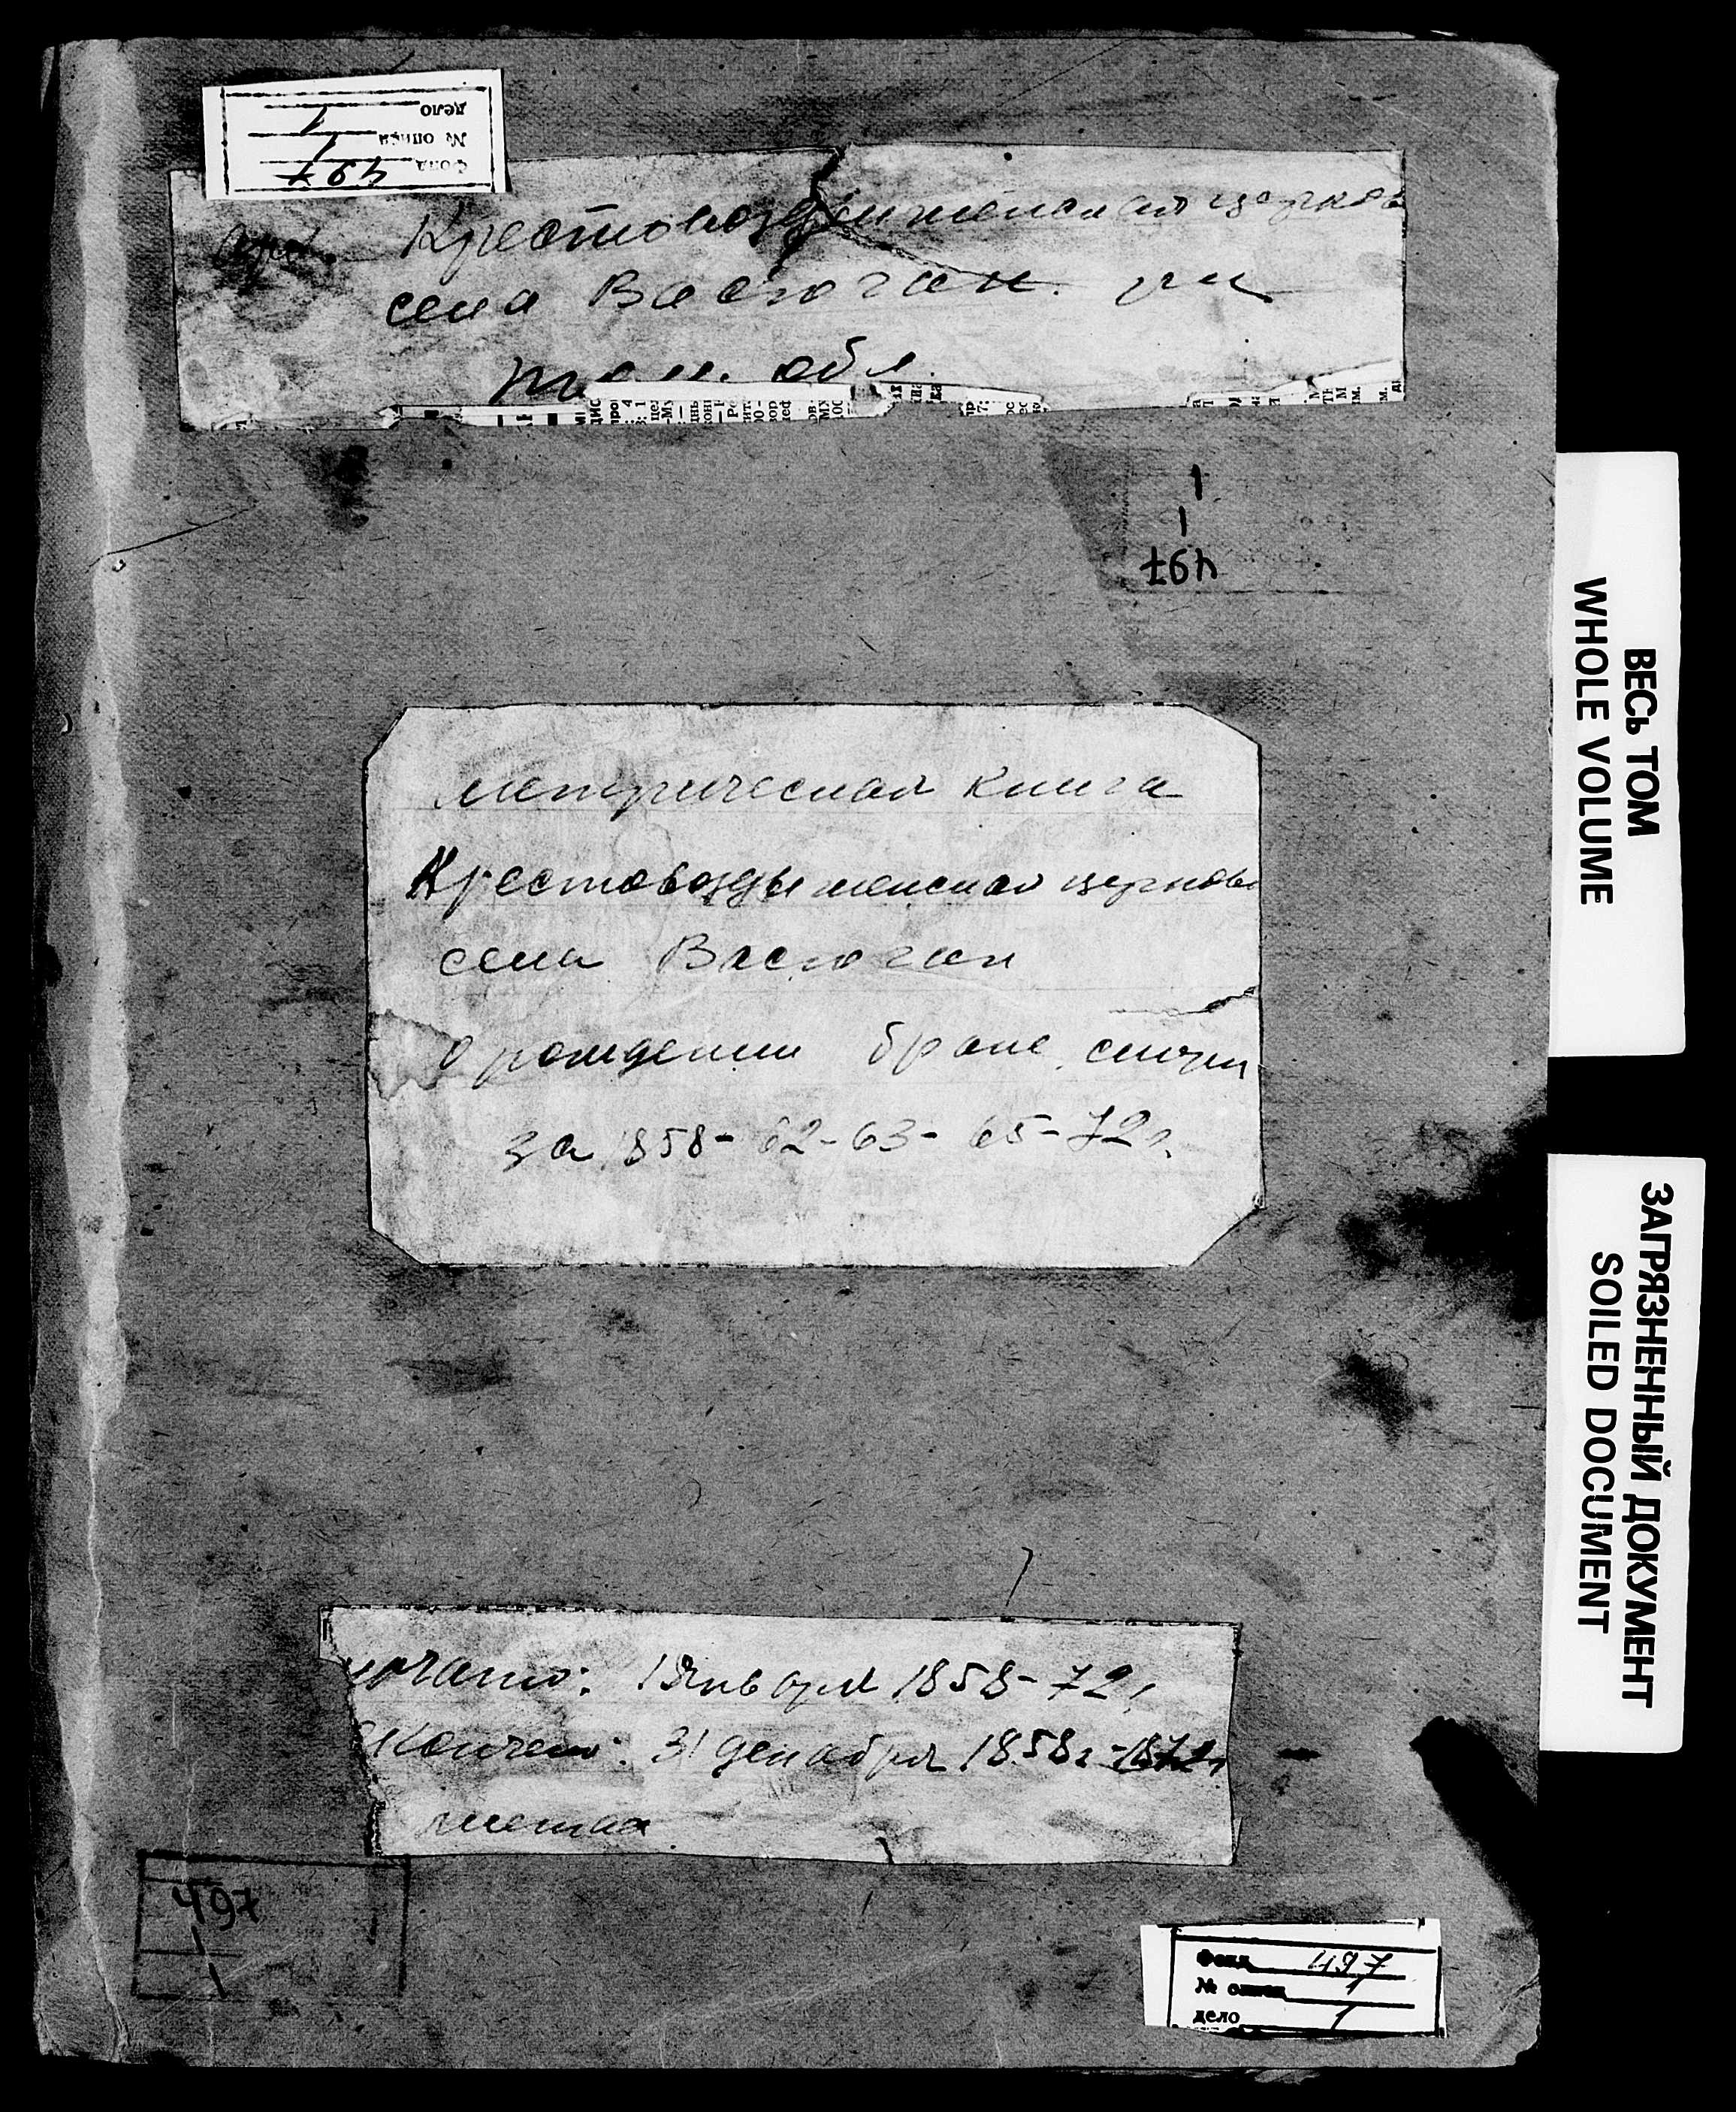 дело 1
№ описи 1
Фонд 497
Крестовоздвиженская церковь
села Васюган.
обл.
1
1
497
ВЕСЬ ТОМ
WHOLE VOLUME
метрическая книга
Крестовоздвиженская церковь
села Васюган
о рождении браке смерти
за 1858-62-63-65-72г.
ЗАГРЯЗНЕННЫЙ ДОКУМЕНТ
SOILED DOCUMENT
начато: 1 января 1858-72г
Окончено: 31 декабря 1858г-1872г
497
1
1
Фонд 497
№ описи 1
дело 1